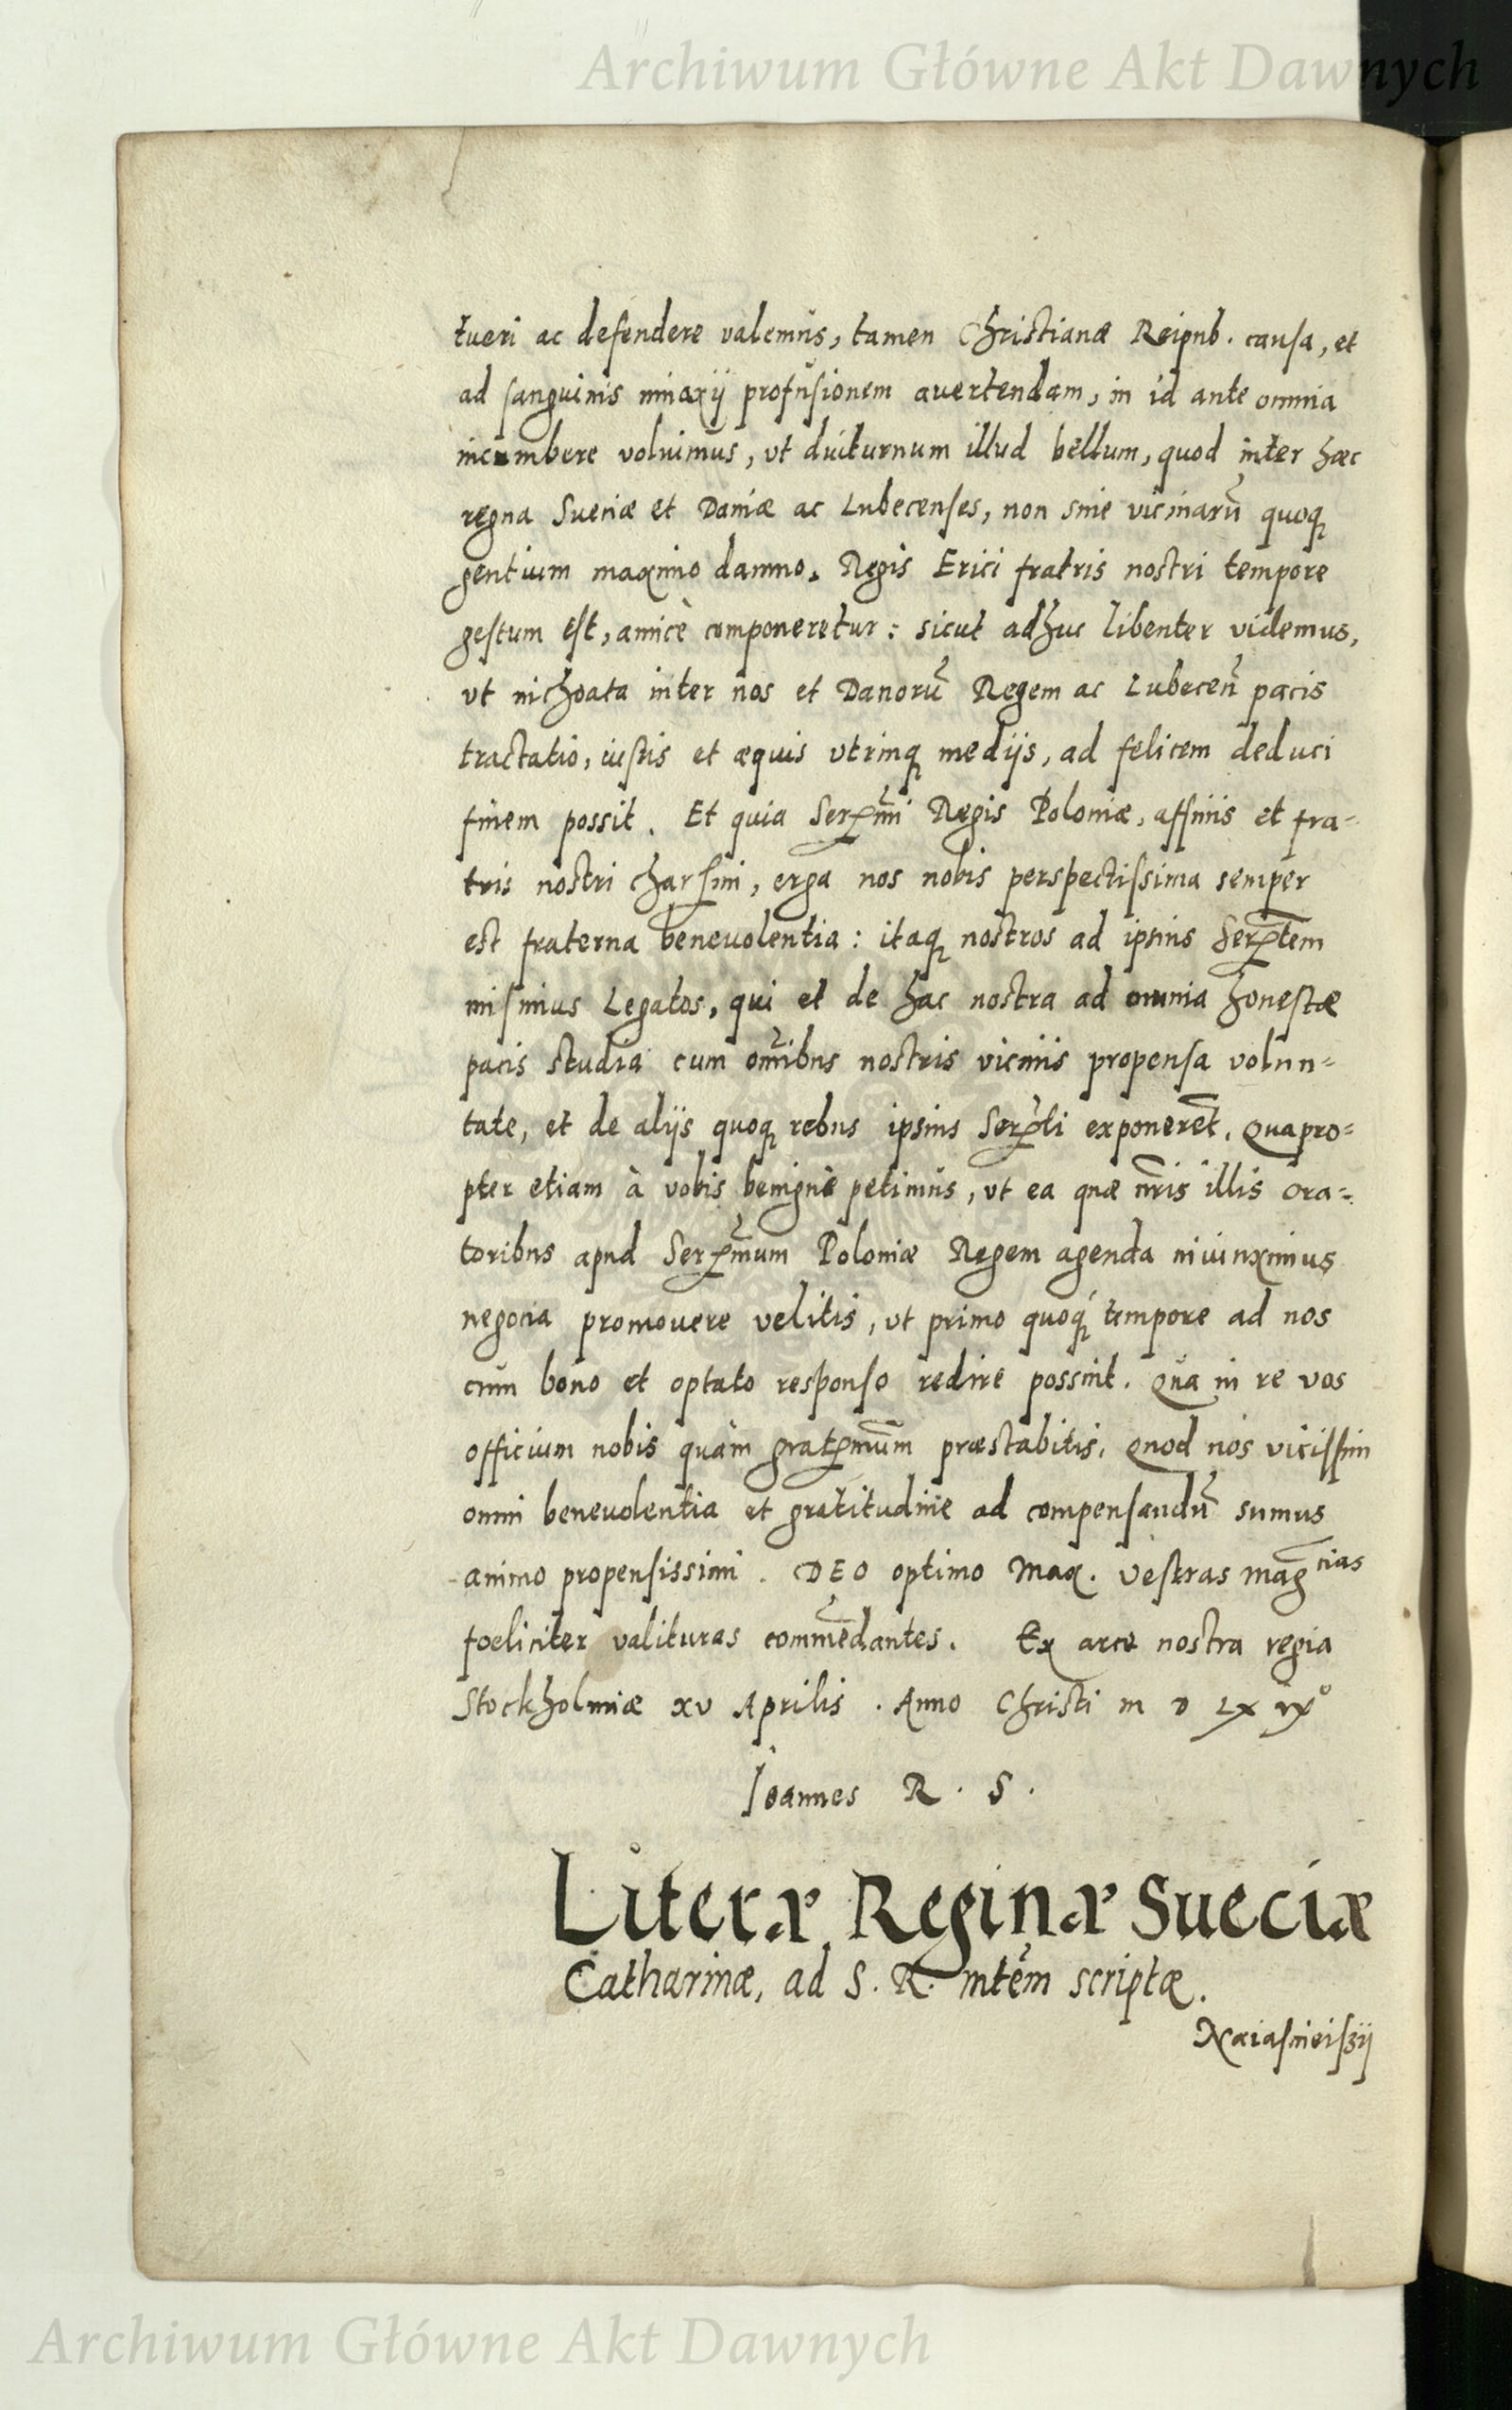 Archiwum Główne Akt Dawnych
tueri ac defendere valemus, tamen Christianæ Reipub. causa, et
ad sanguinis innoxij profusionem auertendam, in id ante omnia
incumbere voluimus, vt diuturnum illud bellum, quod inter hæc
regna Sueciæ et Daniæ ac Lubecenses, non sine vicinarũ quoq
gentium maximo damno, Regis Erici fratris nostri tempore
gestum est, amicè componeretur: sicut adhuc libenter videmus,
vt inchoata inter nos et Danorũ Regem ac Lubeceñ pacis
tractatio, iustis et æquis vtrinq medijs, ad felicem deduci
finem possit. Et quia Serm̃i Regis Poloniæ, affinis et fra=
tris nostri charissimi, erga nos nobis perspectissima semper
est fraterna beneuolentia: itaq nostros ad ipsius Sert̃em
misimus Legatos, qui et de hac nostra ad omnia honestæ
pacis studia cum om̃ibus nostris vicinis propensa volun=
tate, et de alijs quoq rebus ipsius Ser̃ti exponerẽt. Quapro=
pter etiam à vobis benignè petimus, vt ea quæ nr̃is illis Ora=
toribus apud Serm̃um Poloniæ Regem agenda iniunximus
negocia promouere velitis, vt primo quoq tempore ad nos
cum bono et optato responso redire possint. Qua in re vos
officium nobis quàm gratm̃um præstabitis. Quod nos vicissim
omni beneuolentia et gratitudine ad compensandũ sumus
animo propensissimi. DEO optimo Max. vestras mag̃cias
foeliciter valituras commẽdantes. Ex arce nostra regia
Stockholmiæ xv Aprilis. Anno Christi M D LX IX°
Ioannes R. S.
Literæ Reginæ Sueciæ
Catharinæ, ad S. R. mt̃em scriptæ.
Naiasnieiszij
Archiwum Główne Akt Dawnych